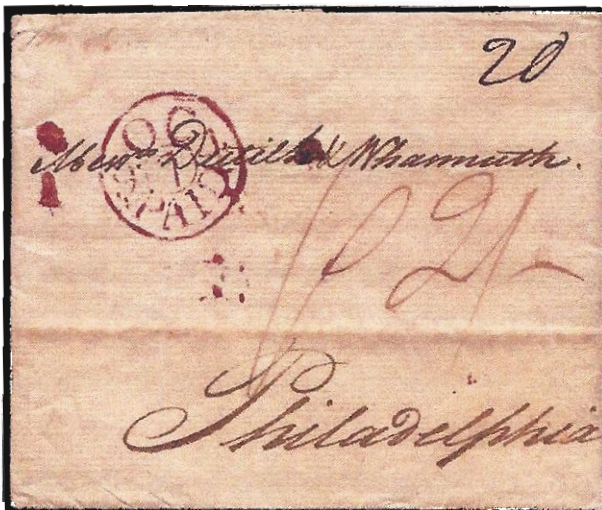 20
Mess.rs Dutilh & Whannuth.
PAID
P 2/-
Philadelphia